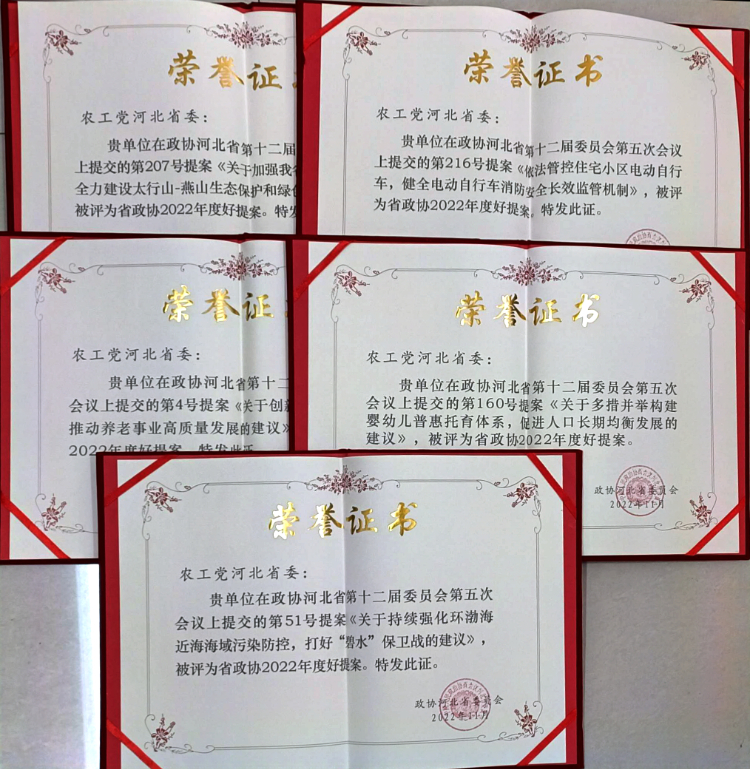 荣誉证
农工党河北省委：
贵单位在政协河北省第十二
上提交的第207号提案《关于加强我省
全力建设太行山-燕山生态保护和绿色
被评为省政协2022年度好提案。特发
荣誉证书
农工党河北省委：
贵单位在政协河北省第十二届委员会第五次会议
上提交的第216号提案《依法管控住宅小区电动自行
车，健全电动自行车消防安全长效监管机制》，被评
为省政协2022年度好提案。特发此证。
荣誉
农工党河北省委：
贵单位在政协河北省第十二
会议上提交的第4号提案《关于创新
推动养老事业高质量发展的建议》
2022年度好提案。特发此证
荣誉证书
农工党河北省委：
贵单位在政协河北省第十二届委员会第五次
会议上提交的第160号提案《关于多措并举构建
婴幼儿普惠托育体系，促进人口长期均衡发展的
建议》，被评为省政协2022年度好提案。
政协河北省委员会
2022年11月
荣誉证书
农工党河北省委：
贵单位在政协河北省第十二届委员会第五次
会议上提交的第51号提案《关于持续强化环渤海
近海海域污染防控，打好“碧水”保卫战的建议》，
被评为省政协2022年度好提案。特发此证。
政协河北省委员会
2022年11月